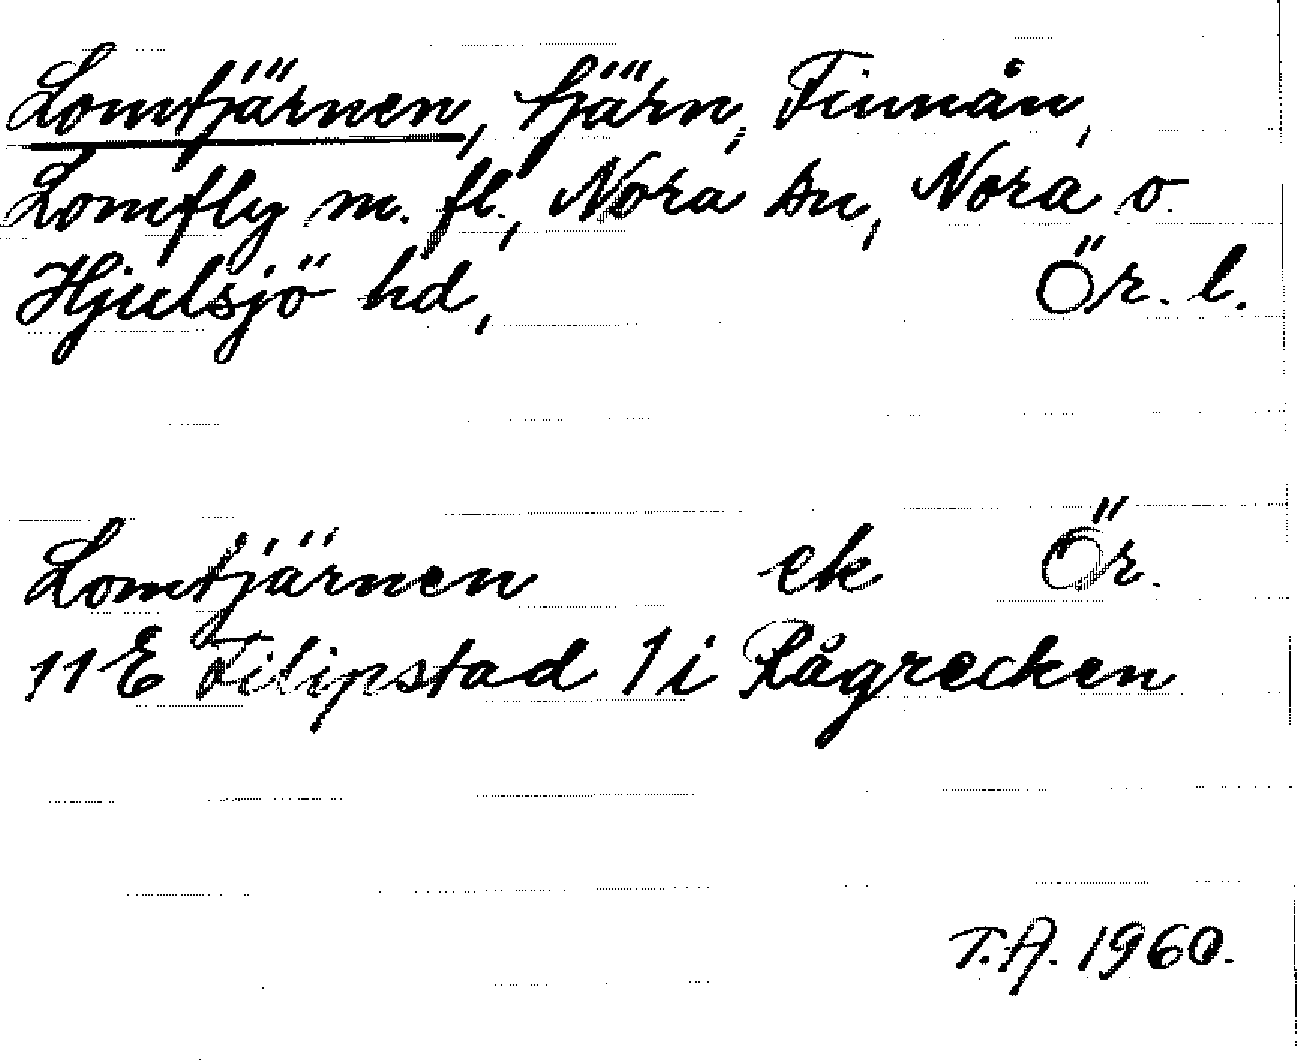 Lomtjärnen, tjärn, Finnån,
Lomfly m. fl., Nora sn, Nora o.
Hjulsjö hd, Ör. l.
Lomtjärnen ek Ör.
11E Filipstad 1i Rågrecken
T.A. 1960.